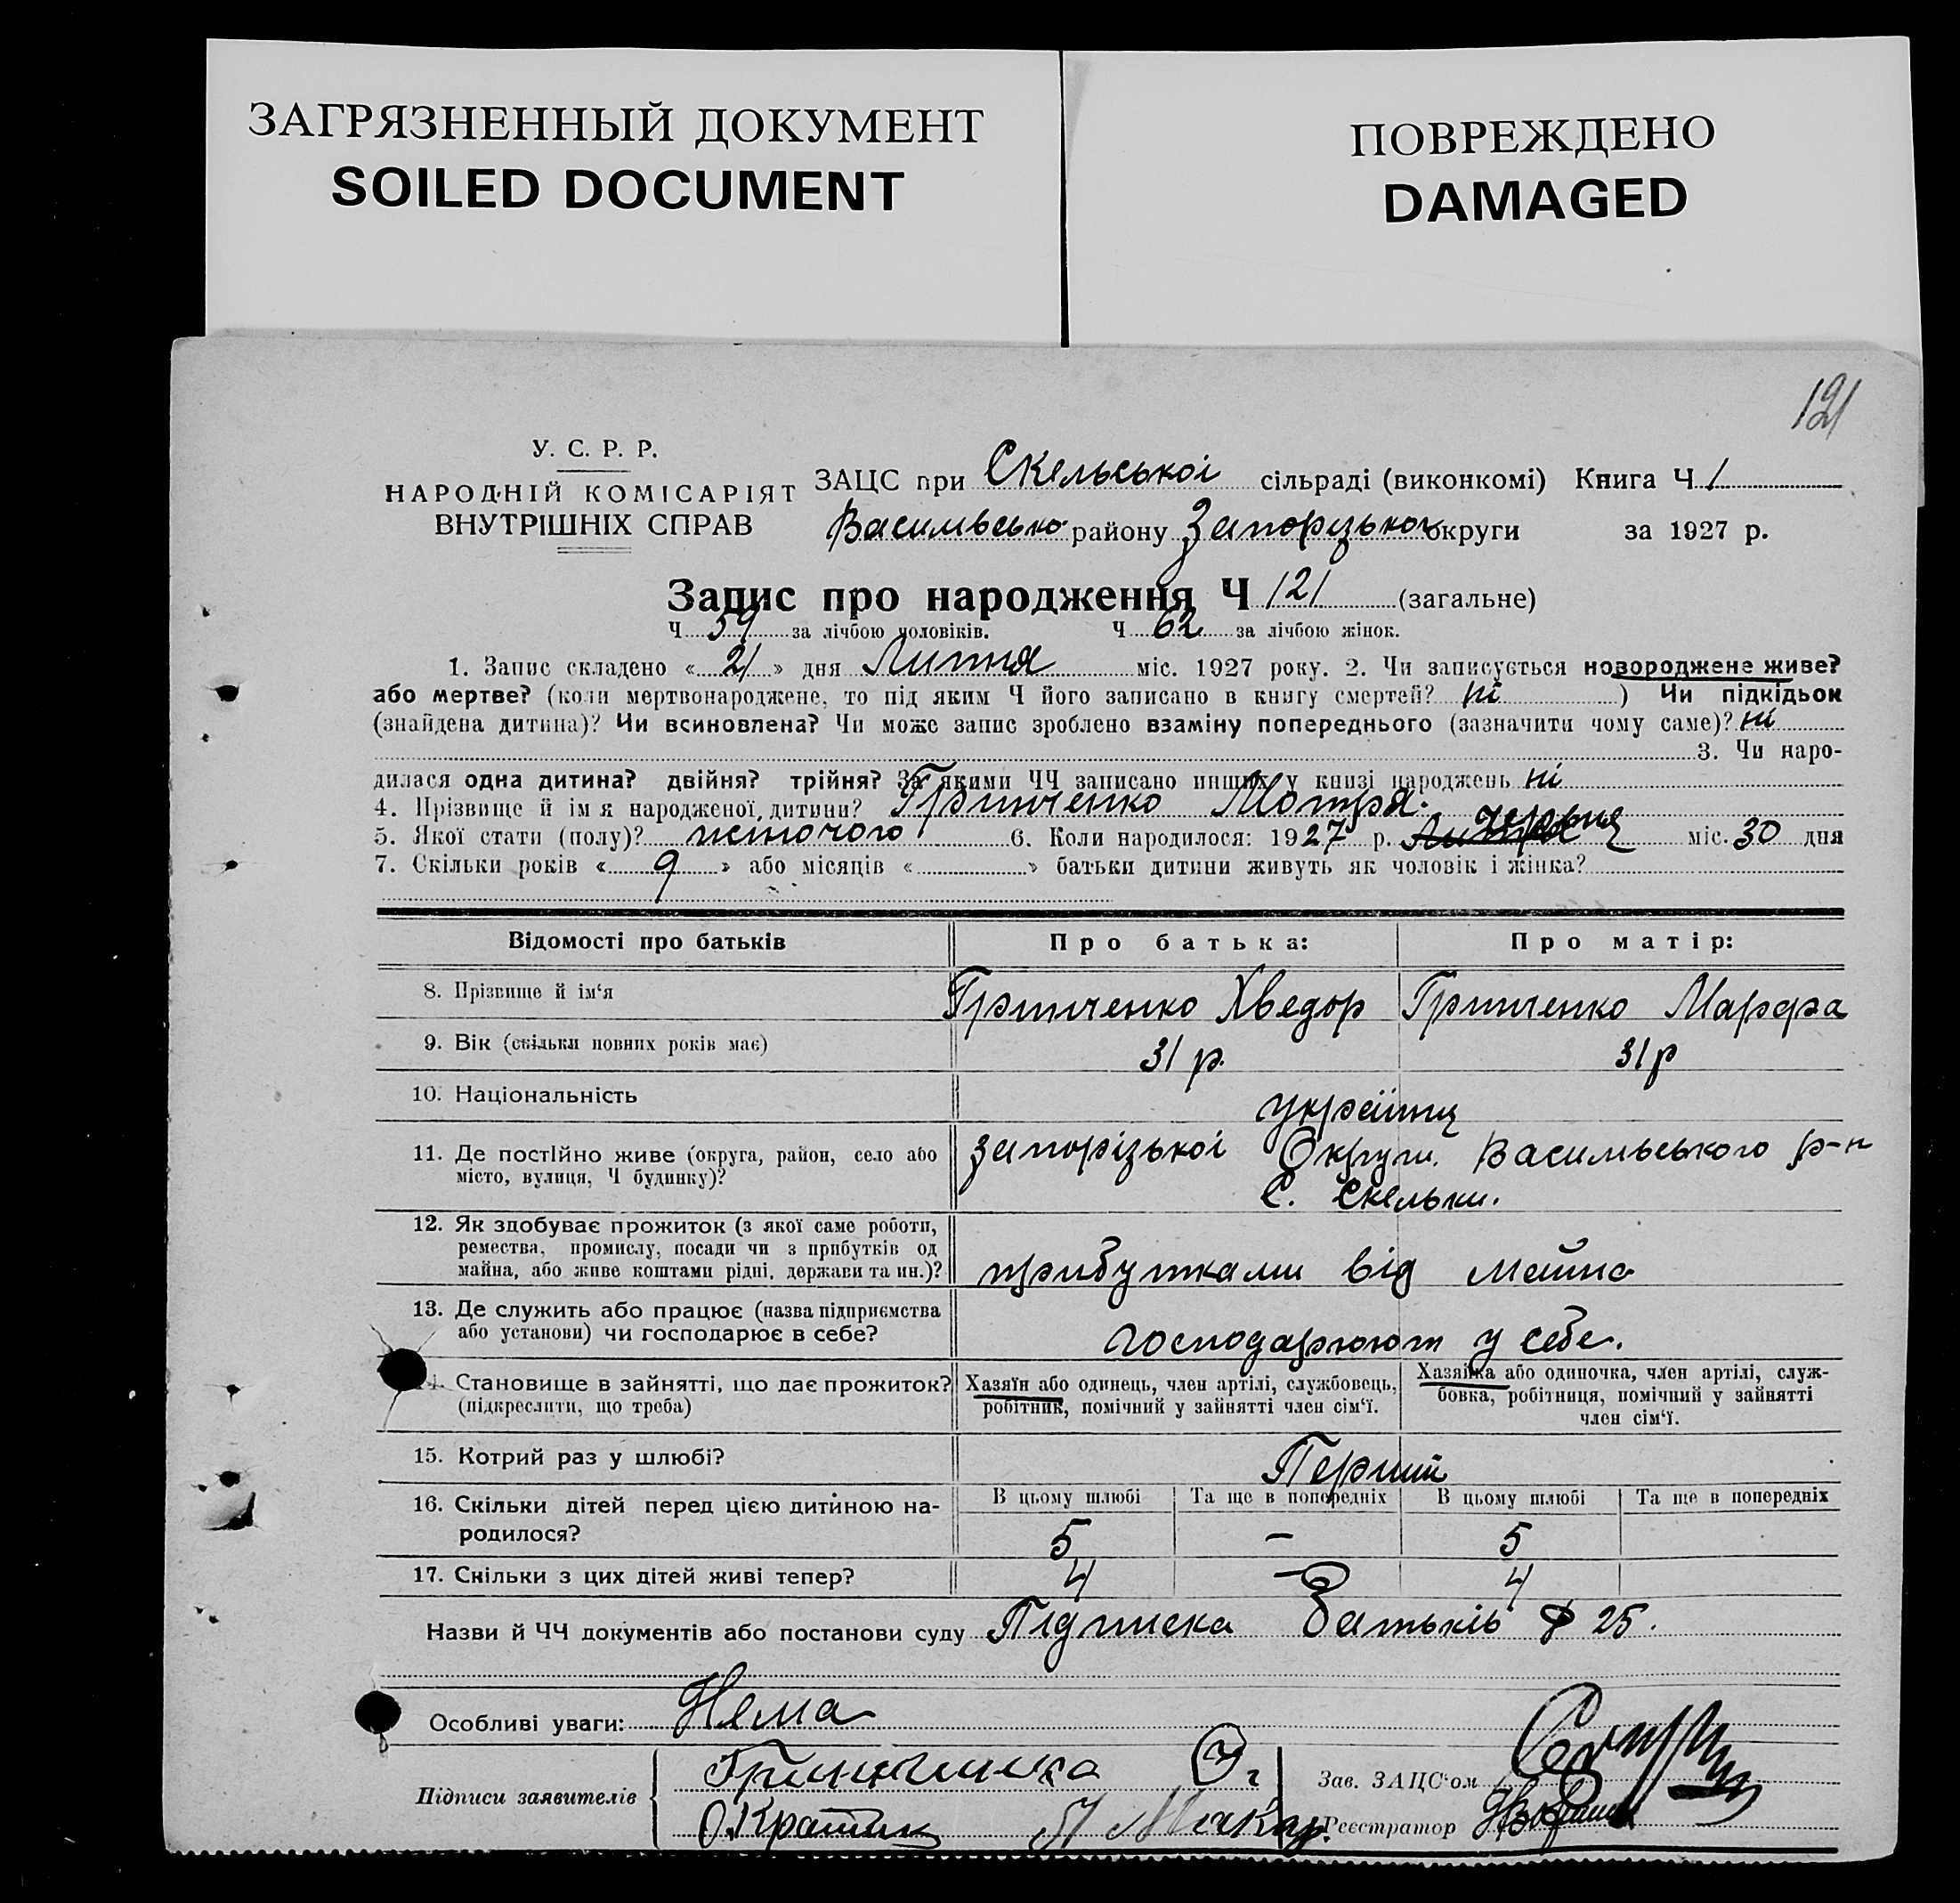 ЗАГРЯЗНЕННЫЙ ДОКУМЕНТ
SOILED DOCUMENT
ПОВРЕЖДЕНО
DAMAGED
121
У. С. Р. Р.
НАРОДНІЙ КОМІСАРІЯТ
ВНУТРІШНІХ СПРАВ
ЗАЦС при Скельської сільраді (виконкомі) Книга Ч 1
Васильвсько району Запорізької округи за 1927 р.
Запис про народження Ч 121 (загальне)
Ч 59 за лічбою чоловіків. Ч 62 за лічбою жінок.
1. Запис складено « 21 » дня Липня міс. 1927 року. 2. Чи записується новороджене живе?
або мертве? (коли мертвонароджене, то під яким Ч його записано в книгу смертей? ні ) Чи підкідьок
(знайдена дитина)? Чи всиновлена? Чи може запис зроблено взаміну попереднього (зазначити чому саме)? ні
3. Чи наро-
дилася одна дитина? двійня? трійня? За якими ЧЧ записано инших у книзі народжень ні
4. Прізвище й ім я народженої дитини? Гринченко Мотря.
5. Якої стати (полу)? жіночого 6. Коли народилося: 1927 р. Липня червня міс. 30 дня
7. Скільки років « 9 » або місяців « » батьки дитини живуть як чоловік і жінка?
Відомості про батьків Про батька: Про матір:
8. Прізвище й ім‘я Гринченко Хведор Гринченко Марфа
9. Вік (скільки повних років має) 31 р. 31 р
10. Національність україн��ц
11. Де постійно живе (округа, район, село або Запорізької Округи. Васильвського р-н
місто, вулиця, Ч будинку)? С. Скельки.
12. Як здобуває прожиток (з якої саме роботи,
ремества, промислу, посади чи з прибутків од
майна, або живе коштами рідні, держави та ин.)? прибутками від майна
13. Де служить або працює (назва підприємства
або установи) чи господарює в себе? господарюют у себе.
Становище в зайнятті, що дає прожиток? Хазяїн або одинець, член артілі, службовець, Хазяйка або одиночка, член артілі, служ-
(підкреслити, що треба) робітник, помічний у зайнятті член сім‘ї. бовка, робітниця, помічний у зайнятті
член сім‘ї.
15. Котрий раз у шлюбі? Перший
16. Скільки дітей перед цією дитиною на- В цьому шлюбі Та ще в попередніх В цьому шлюбі Та ще в попередніх
родилося? 5 — 5
17. Скільки з цих дітей живі тепер? 4 — 4
Назви й ЧЧ документів або постанови суду Підписка Батьків 25.
Особливі уваги: Нема
Підписи заявителів
Зав. ЗАЦС‘ом
Реєстратор